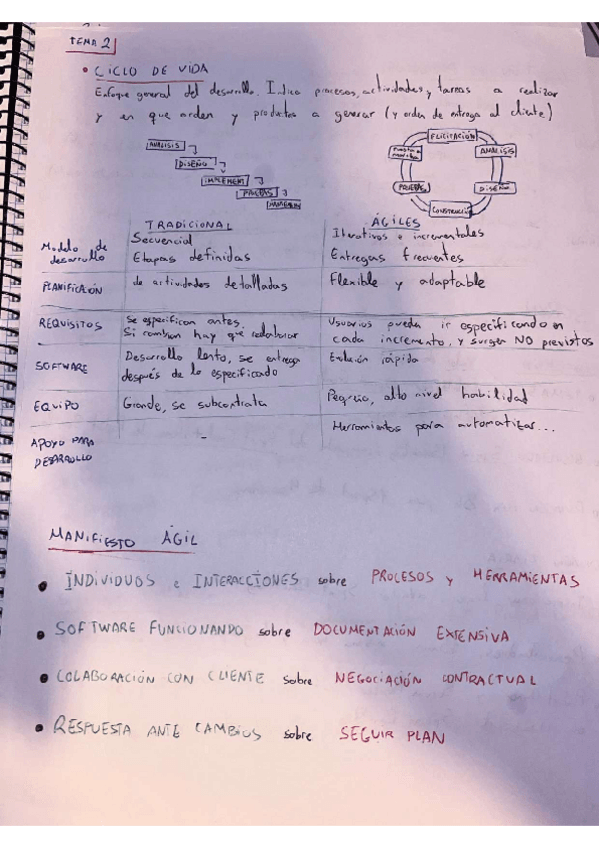 TEMA 2
• CICLO DE VIDA
Enfoque general del desarrollo. Indica procesos, actividades y tareas a realizar
y en que orden y productos a generar (y orden de entrega al cliente)
ANÁLISIS
DISEÑO
IMPLEMENT
PRUEBAS
ELICITACIÓN
ANÁLISIS
DISEÑO
CONSTRUCCIÓN
PRUEBAS
TRADICIONAL
ÁGILES
Modelo de desarrollo
Secuencial
Etapas definidas
Iterativos e incrementales
Entregas frecuentes
PLANIFICACIÓN
de actividades detalladas
Flexible y adaptable
REQUISITOS
Se especifican antes.
Si cambian hay que reelaborar
Usuarios pueden ir especificando en
cada incremento, y surgen NO previstos
SOFTWARE
Desarrollo lento, se entrega
después de lo especificado
Evolución rápida
EQUIPO
Grande, se subcontrata
Pequeño, alto nivel habilidad
APOYO PARA
DESARROLLO
-
Herramientas para automatizar...
MANIFIESTO ÁGIL
• INDIVIDUOS e INTERACCIONES sobre PROCESOS y HERRAMIENTAS
• SOFTWARE FUNCIONANDO sobre DOCUMENTACIÓN EXTENSIVA
• COLABORACIÓN CON CLIENTE sobre NEGOCIACIÓN CONTRACTUAL
• RESPUESTA ANTE CAMBIOS sobre SEGUIR PLAN